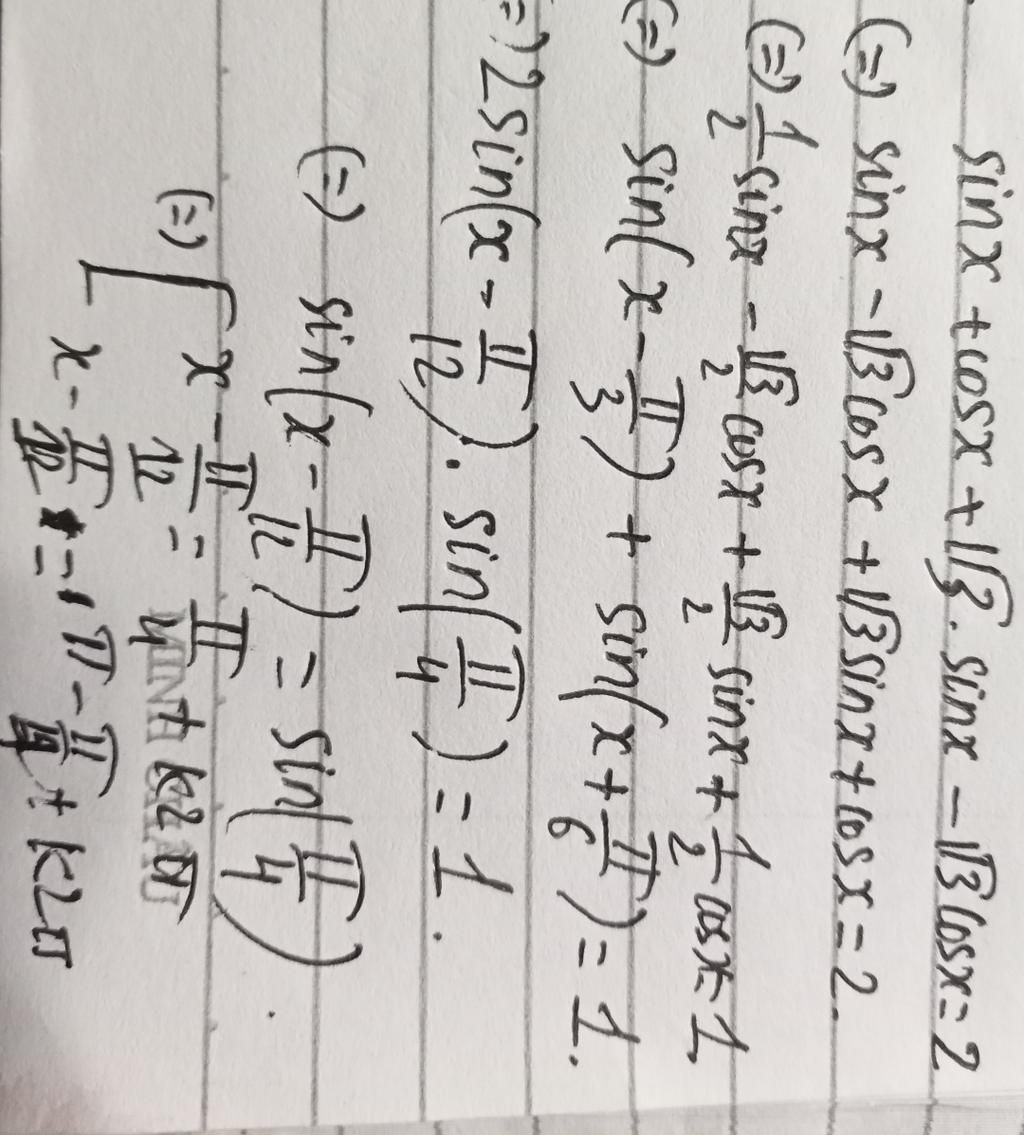 sinx + cosx + √3. sinx - √3 cosx = 2
(=) sinx - √3 cosx + √3 sinx + cosx = 2.
(=) 1/2 sinx - √3/2 cosx + √3/2 sinx + 1/2 cosx = 1
(=) sin(x - π/3) + sin(x + π/6) = 1.
(=) 2 sin(x - π/12). sin(π/4) = 1.
(=) sin(x - π/12) = sin(π/4).
(=) [ x - π/12 = π/4 + k2π
x - π/12 = π - π/4 + k2π